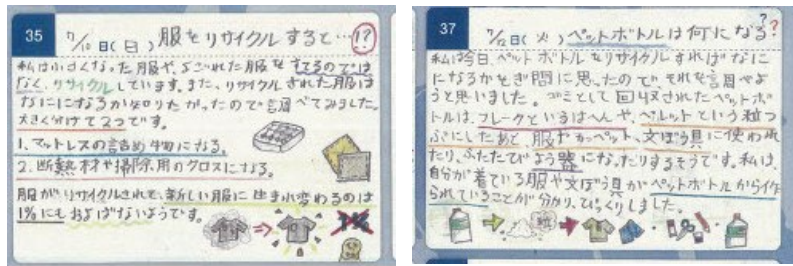 35
7/10日(日) 服をリサイクルすると…!?
私は小さくなった服や、よごれた服をすてるのでは
なく、リサイクルしています。また、リサイクルされた服は
なにになるか知りたかったので調べてみました。
大きく分けて2つです。
1.マットレスの詰め物になる。
2.断熱材や掃除用のクロスになる。
服がリサイクルされて、新しい服に生まれ変わるのは
1%にもおよばないようです。
1%
37
7/12日(火) ペットボトルは何になる??
私は今日、ペットボトルをリサイクルすればなに
になるかぎ問に思ったので、それを調べよ
うと思いました。ゴミとして回収されたペットボ
トルは、フレークというはへんや、ペルットという粒つ
ぶにしたあと、服やカーペット、文ぼう具に使われ
たり、ふたたびよう器になったりするそうです。私は、
自分が着ている服や文ぼう具がペットボトルから作
られていることが分かり、びっくりしました。